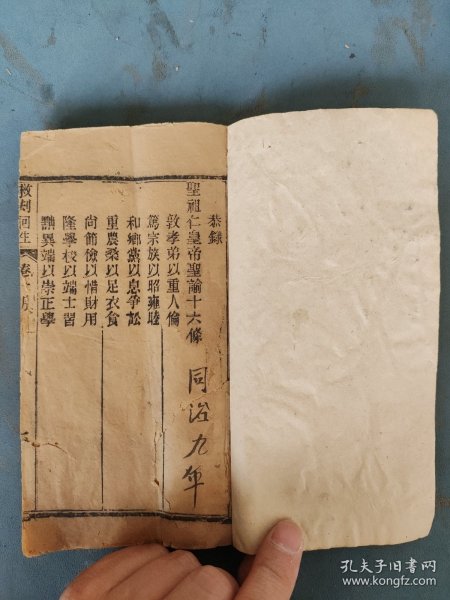 恭錄
聖祖仁皇帝聖諭十六條
敦孝弟以重人倫
篤宗族以昭雍睦
和鄉黨以息爭訟
重農桑以足衣食
尚節儉以惜財用
隆學校以端士習
黜異端以崇正學
救刼回生
卷
同治九年
孔夫子旧书网
www.kongfz.com